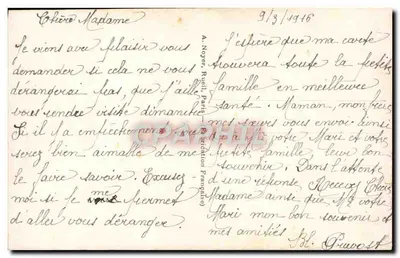 Chère Madame
9/3/1916
Je viens avec plaisir vous
demander si cela ne vous
dérangerai pas, que j'aille
vous rendre visite dimanche
Si il y a empêchement vous
serez bien aimable de me
le faire savoir. Excusez-
moi si je me permet
d'aller vous déranger.
A. Noyer, Rueil, Paris (Fabrication Française)
J'espère que ma carte
trouvera toute la petite
famille en meilleure
santé. Maman, mon frère
mes sœurs vous envoie ainsi
votre Mari et votre
petite famille leur bon
souvenir. Dans l'attente
d'une réponse Recevez Chère
Madame ainsi que Mr votre
Mari mon bon souvenir et
mes amitiés
Bl. Pravost